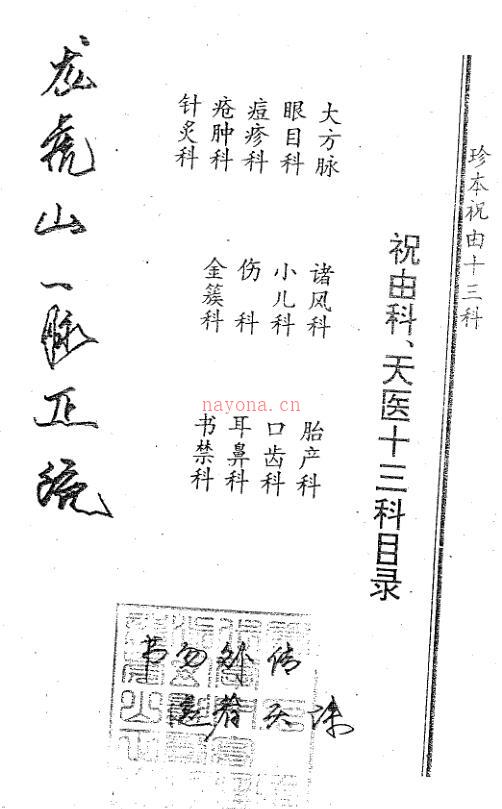 珍本祝由十三科
祝由科、天医十三科目录
大方脉
诸风科
胎产科
眼目科
小儿科
口齿科
痘疹科
伤科
耳鼻科
疮肿科
金簇科
书禁科
针灸科
龙虎山一脉正统
nayona.cn
书勿外传